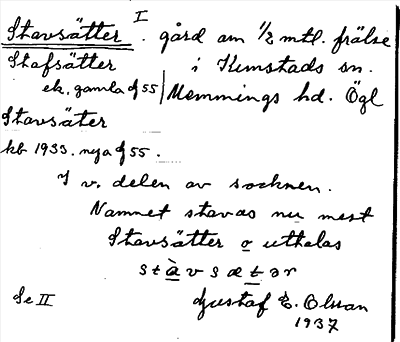 Stavsätter I. gård om 1/2 mtl. frälse
Stafsätter i Kimstads sn.
ek. gamla g 55 | Memmings hd. Ögl
Stavsäter
kb 1933. nya g 55.
I v. delen av socknen.
Namnet stavas nu mest
Stavsätter o uttalas
stàvsætər
Se II Gustaf E. Olsson
1937